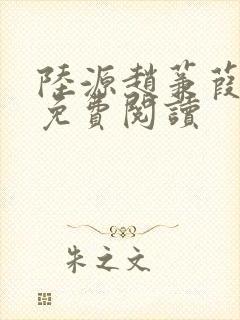 陸源趙蒹葭
免費閱讀
朱之文